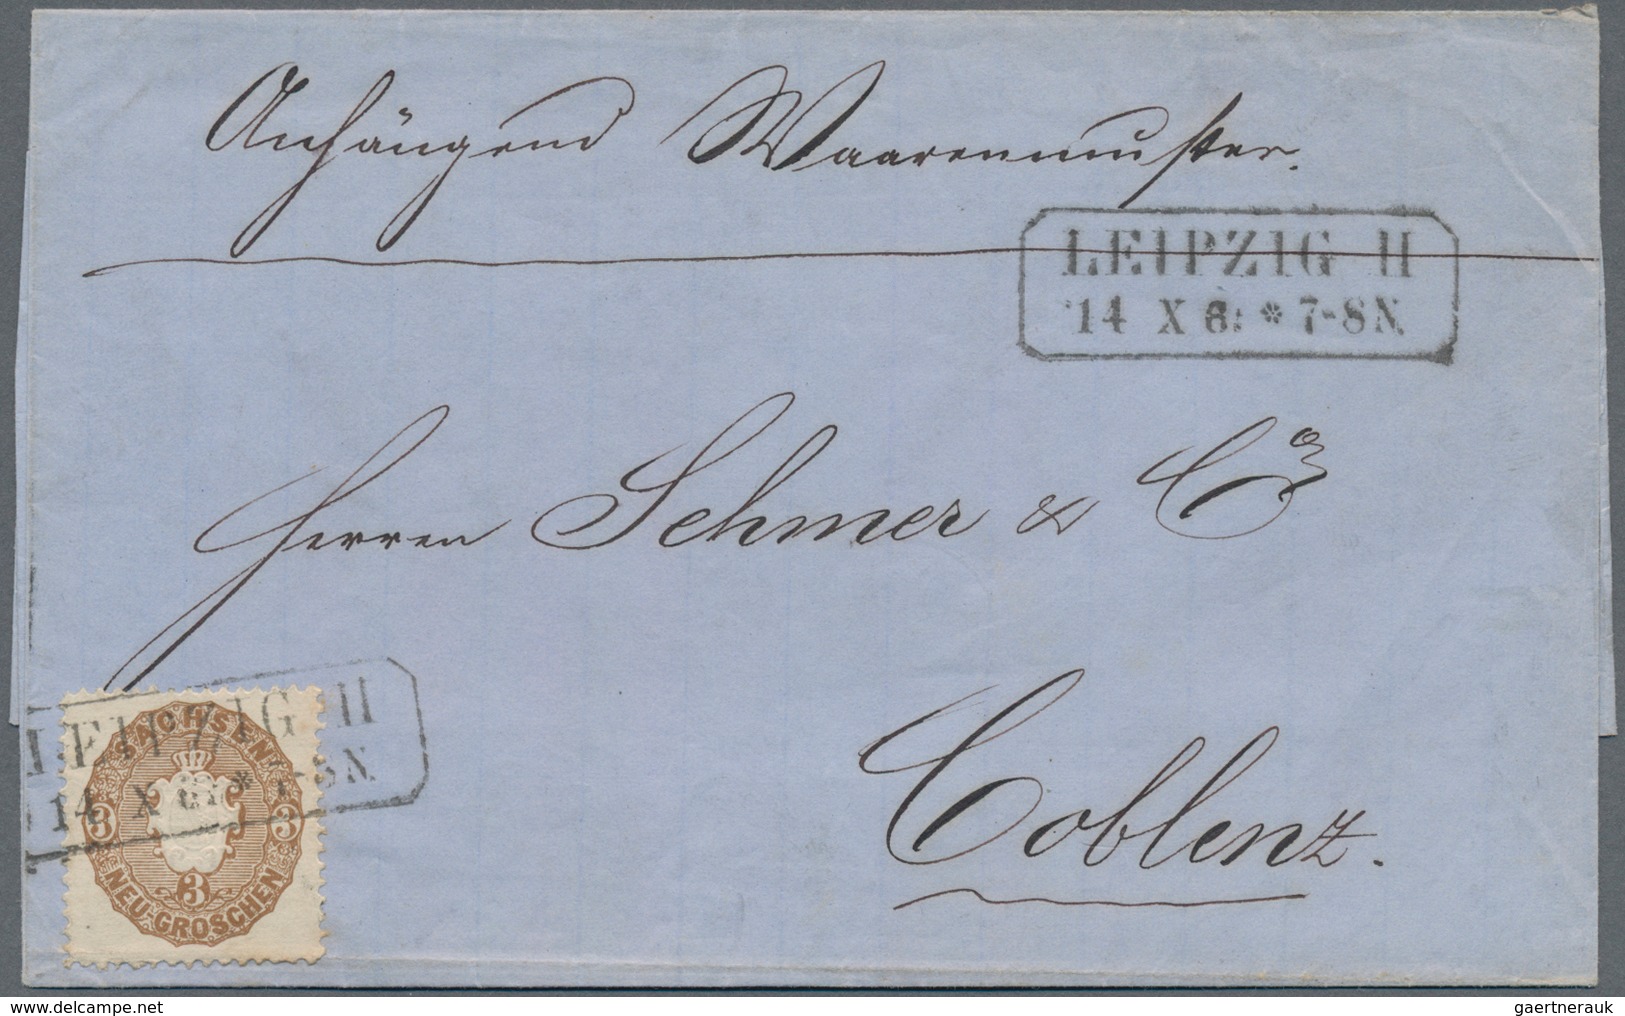 Anhängend Waarenmuster.
LEIPZIG II
14 X 6. * 7-8 N.
Herren Schmer & Co
Coblenz.
LEIPZIG II
14 X * 7-8 N.
SACHSEN
3 3
3
NEU-GROSCHEN
gaertnerauk